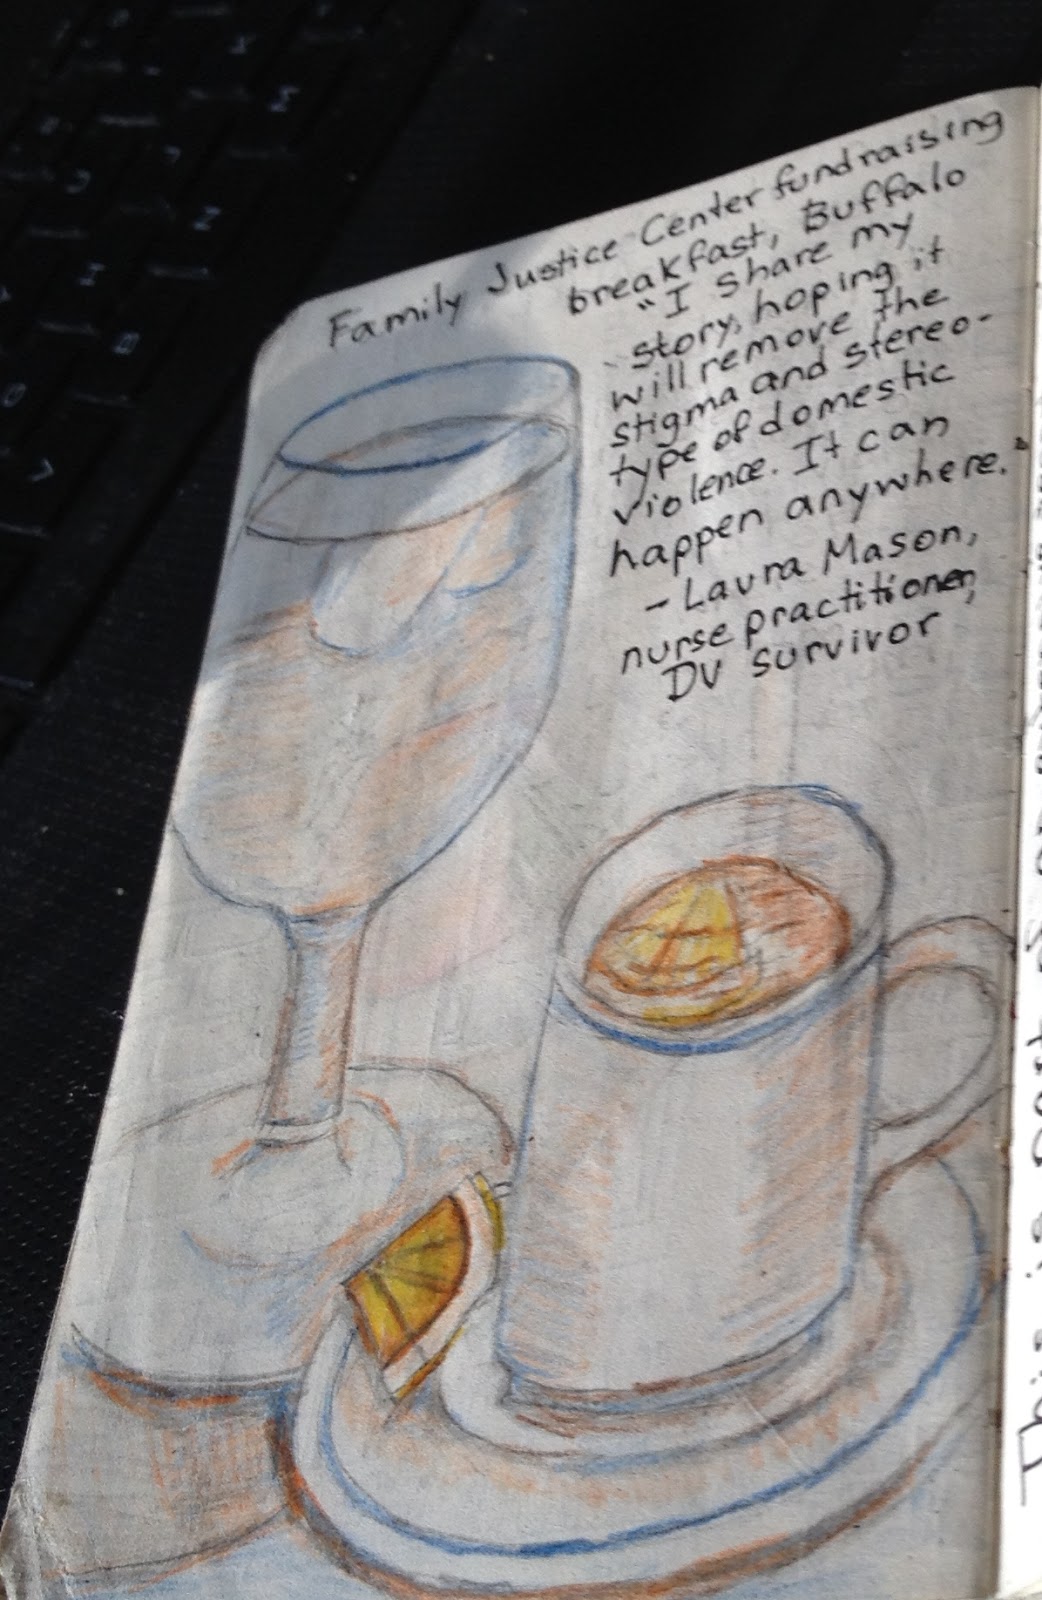 Family Justice Center fundraising
breakfast, Buffalo
"I share my
story, hoping it
will remove the
stigma and stereo-
type of domestic
violence. It can
happen anywhere."
- Laura Mason,
nurse practitioner,
DV survivor